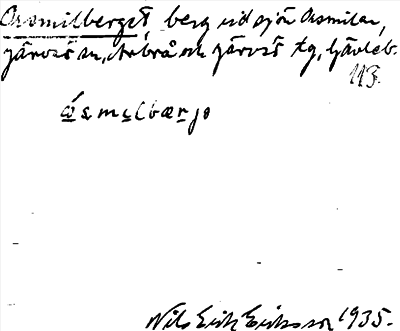 Åsmilberget, berg vid sjön Åsmilen,
Järvsö sn, Arbrå och Järvsö tg, Gävleb.
113.
ásmɩlbærjə
Nils Erik Eriksson 1935.